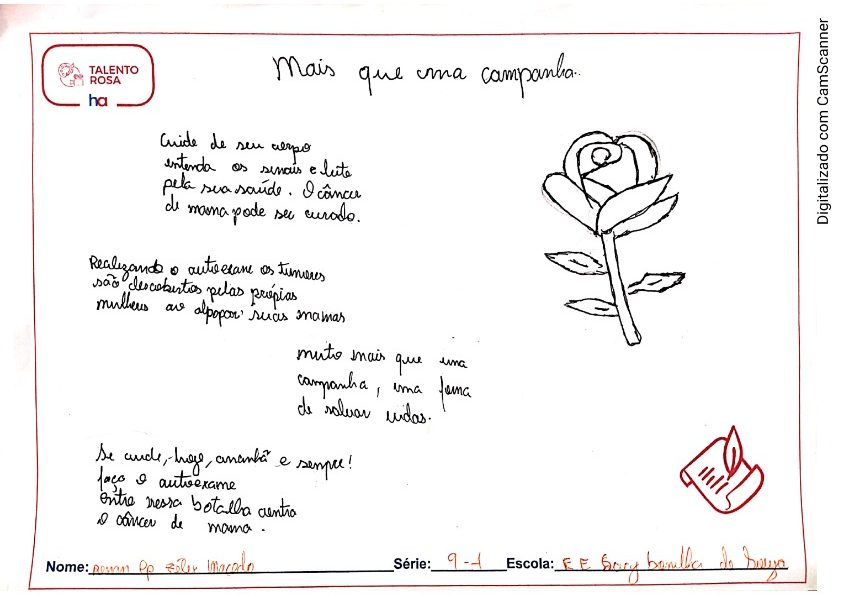 TALENTO
ROSA
ha
Mais que uma campanha.
Cuide de seu corpo
entenda os sinais e lute
pela sua saúde. O câncer
de mama pode ser curado.
Realizando o autoexame os tumores
são descobertos pelas própias
mulheres ao alpopar suas mamas
muito mais que uma
campanha, uma forma
de salvar vidas.
Se cuide, hoje, amanhã e sempre!
faça o autoexame
entre nessa batalha contra
o câncer de mama.
Nome:
Série: 9-1
Escola: E E
Digitalizado com CamScanner